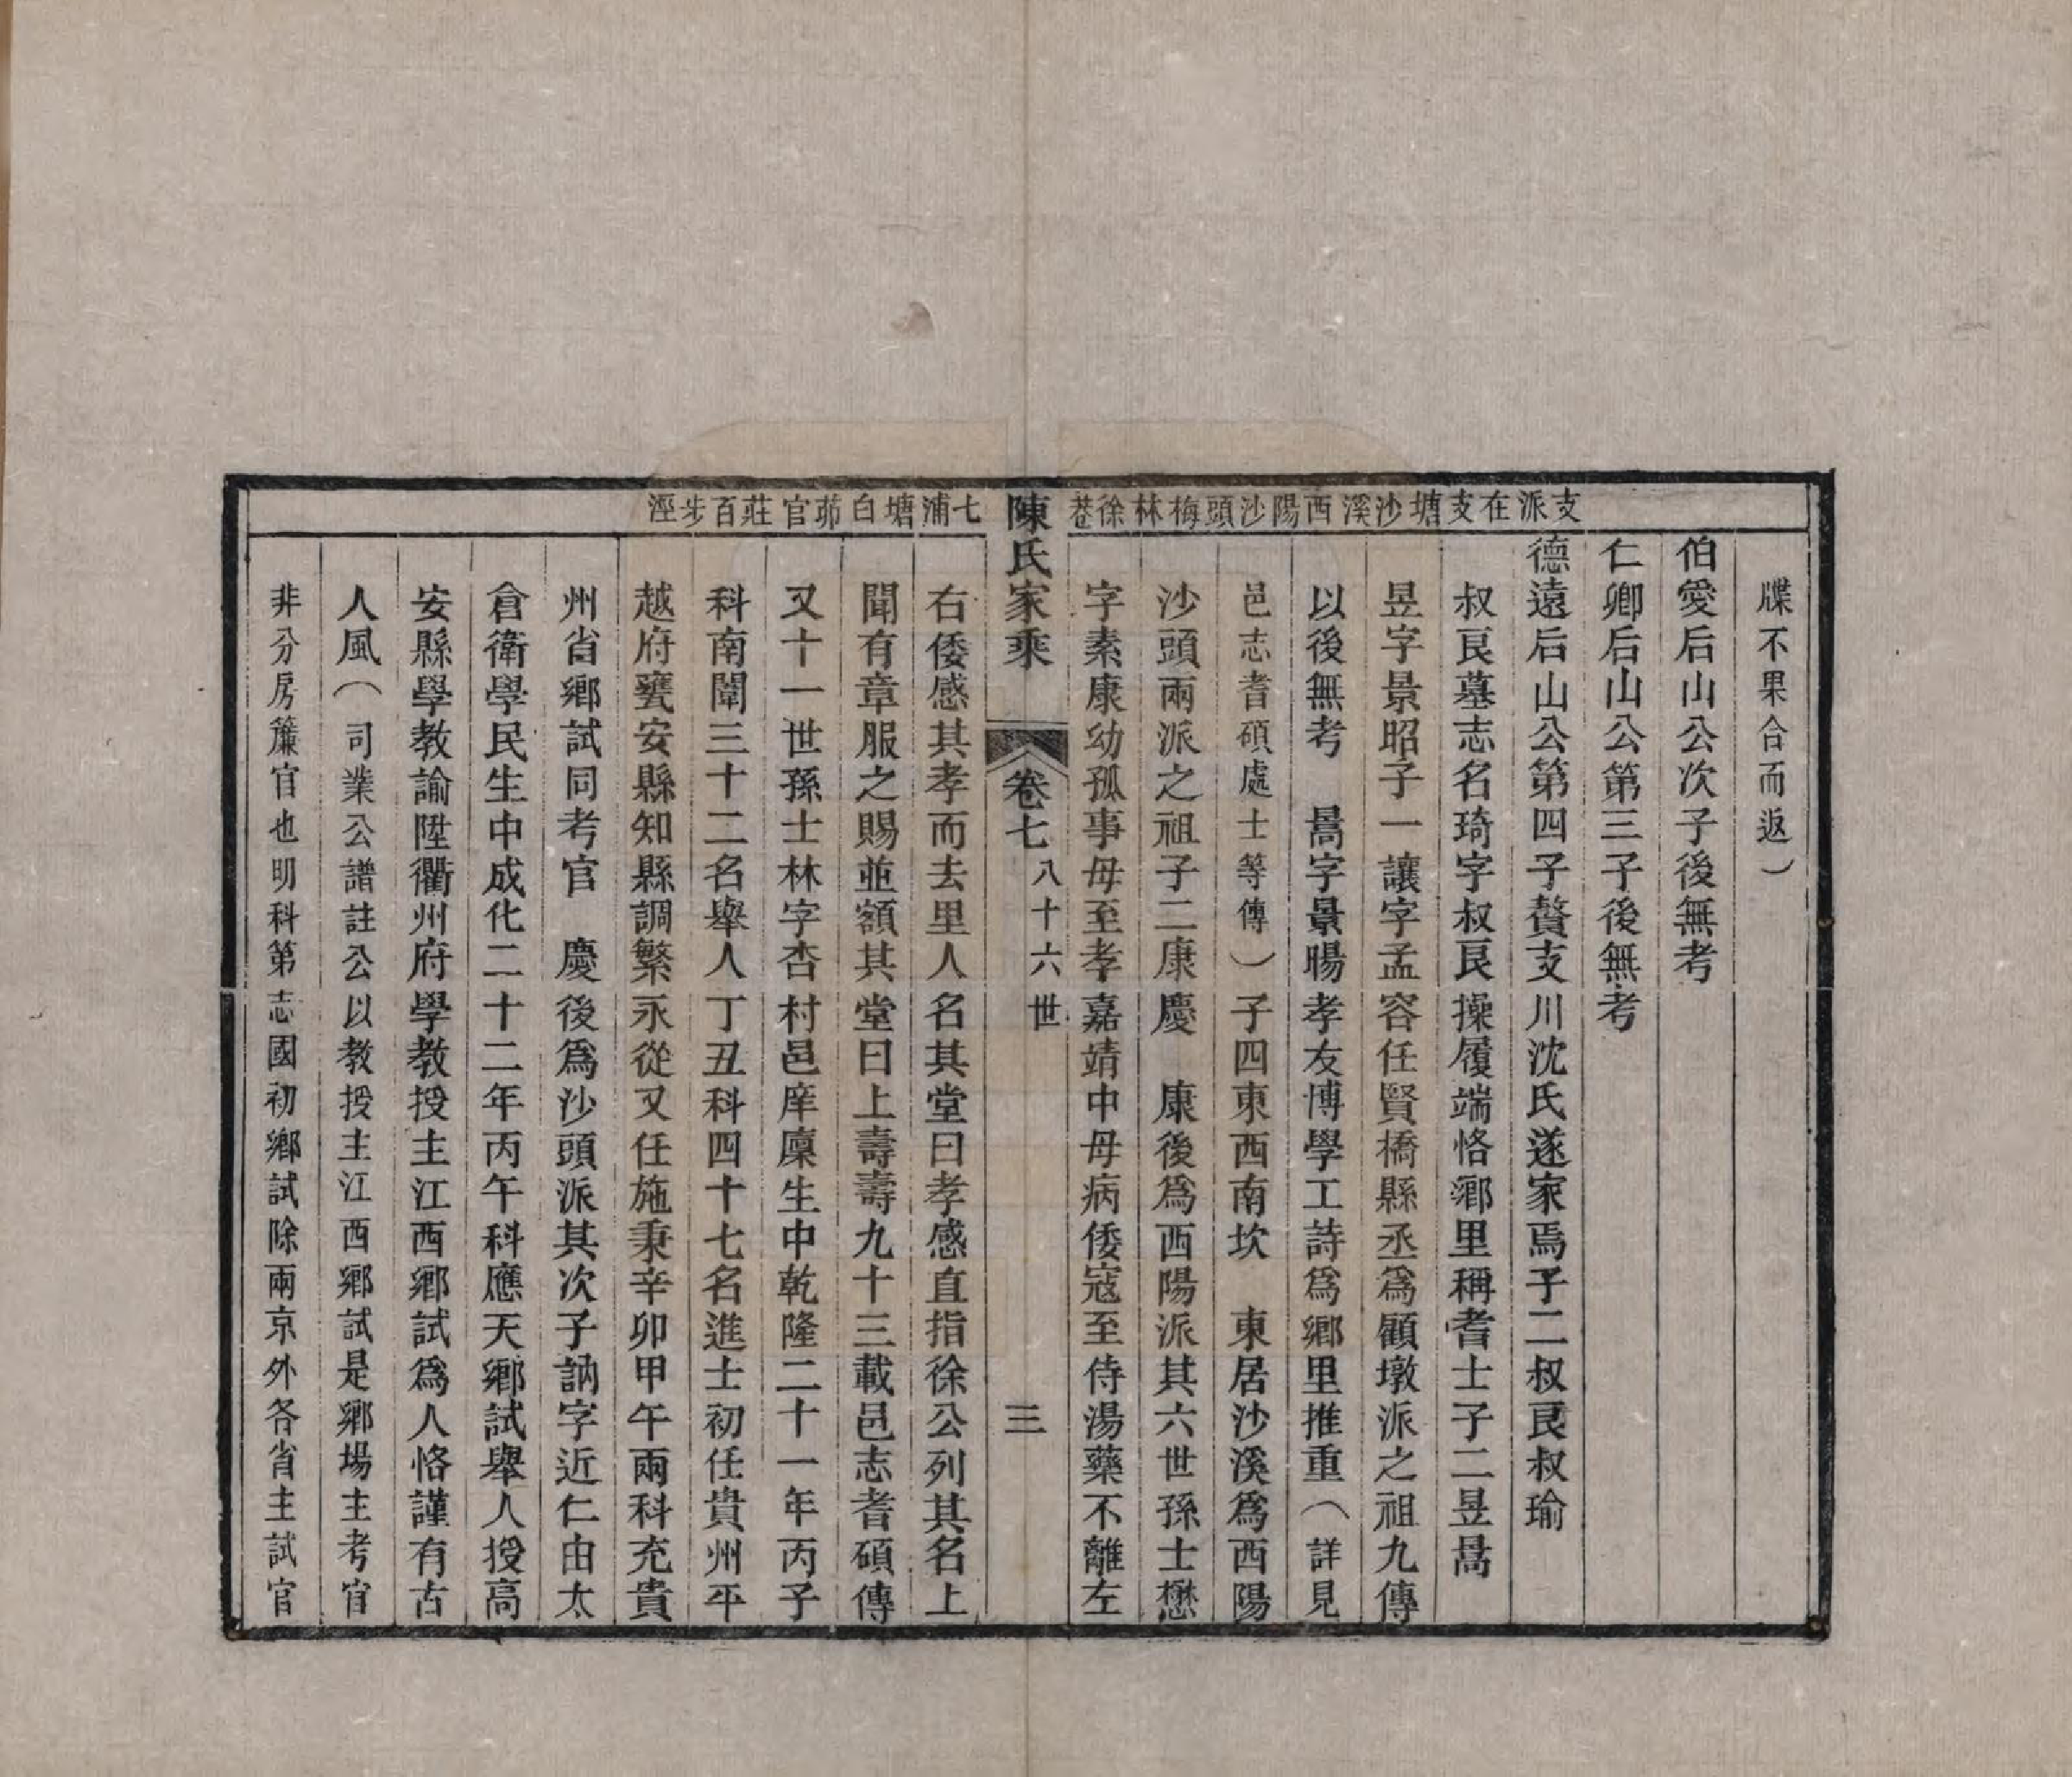 支派在支塘沙溪西陽沙頭梅林徐巷
牒不果合而返）
伯愛后山公次子後無考
仁卿后山公第三子後無考
德遠后山公第四子贅支川沈氏遂家焉子二叔艮叔瑜
叔艮墓志名琦字叔艮操履端恪鄉里稱耆士子二昱暠
昱字景昭子一讓字孟容任賢橋縣丞爲顧墩派之祖九傳
以後無考　暠字景暘孝友博學工詩爲鄉里推重（詳見
邑志耆碩處士等傳）子四東西南坎　東居沙溪爲西陽
沙頭兩派之祖子二康慶　康後爲西陽派其六世孫士懋
字素康幼孤事母至孝嘉靖中母病倭寇至侍湯藥不離左
陳氏家乘　卷七　八十六世　三
七浦塘白茆官莊百步涇
右倭感其孝而去里人名其堂曰孝感直指徐公列其名上
聞有章服之賜並額其堂曰上壽壽九十三載邑志耆碩傳
又十一世孫士林字杏村邑庠廩生中乾隆二十一年丙子
科南闈三十二名舉人丁丑科四十七名進士初任貴州平
越府甕安縣知縣調繁永從又任施秉辛卯甲午兩科充貴
州省鄉試同考官　慶後爲沙頭派其次子訥字近仁由太
倉衛學民生中成化二十二年丙午科應天鄉試舉人授高
安縣學教諭陞衢州府學教授主江西鄉試爲人恪謹有古
人風（司業公譜註公以教授主江西鄉試是鄉場主考官
非分房簾官也明科第志國初鄉試除兩京外各省主試官